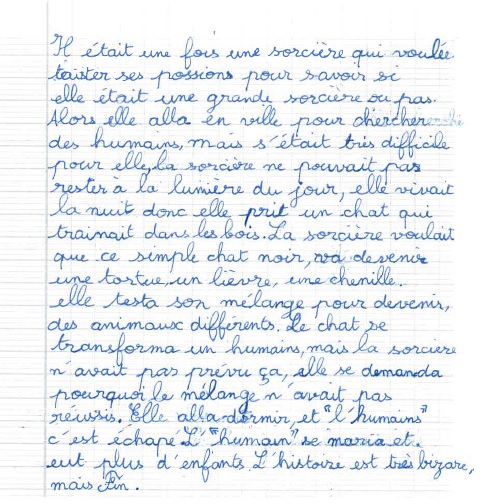 Il était une fois une sorcière qui voulée
taister ses possions pour savoir si
elle était une grande sorcière ou pas.
Alors elle alla en ville pour chercher
des humains, mais s'était très difficile
pour elle, la sorcière ne pouvait pas
rester à la lumière du jour, elle vivait
la nuit donc elle prit un chat qui
trainait dans les bois. La sorcière voulait
que ce simple chat noir, devenir
une tortue, un lièvre, une chenille.
elle testa son mélange pour devenir,
des animaux différents. Le chat se
transforma un humains, mais la sorciere
n'avait pas prévu ça, elle se demanda
pourquoi le mélange n'avait pas
réussis. Elle alla dormir, et "l'humains"
c'est échapé. L'"humain" se maria et
eut plus d'enfants. L'histoire est très bizare,
mais Fin.